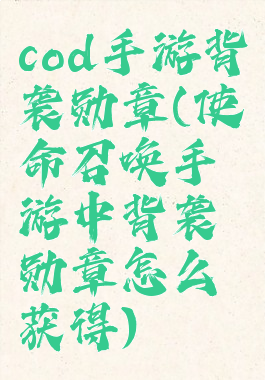 cod手游背
袭勋章(使
命召唤手
游中背袭
勋章怎么
获得)